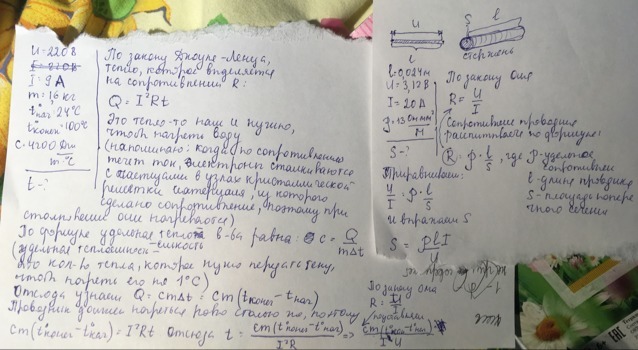 U=220В
I=9А
m=1,6 кг
tнач=24°С
tконеч=100°С
c=4200 Дж
m·°С
t-?
По закону Джоуля-Ленца,
тепло, которое выделяется
на сопротивлении R:
Q=I²Rt
Это тепло-то нам и нужно,
чтоб нагреть воду
(напоминаю: когда по сопротивлению
течет ток, электроны сталкиваются
с частицами в узлах кристаллической
решетки материала, из которого
сделано сопротивление, поэтому при
столкновении они нагреваются)
По формуле удельная в-ва равна: c = Q
mΔt
(удельная теплоемкость
это кол-во тепла, которое нужно передать телу,
чтоб нагреть его на 1°С)
Отсюда узнаем Q=cmΔt=cm(tконеч-tнач)
Проводник должен нагреться ровно столько же, поэтому
cm(t°конеч-t°нач)=I²Rt отсюда t= cm(t°конеч-t°нач) =>
I²R
По закону Ома
R=U
I
подставляем
cm(t°кон-t°нач)
I U
U
l
S
l
стержень
l=0,024м
U=3,12В
I=20А
S-?
По закону Ома
R=U
I
Сопротивление проводника
рассчитываем по формуле:
R=ρ·l
S
, где ρ-удельное
сопротивление
l-длина проводника
S-площадь попере
чного сечения
Приравниваем:
U=ρ·l
I S
и выражаем S
S=ρlI
U
ЕАС